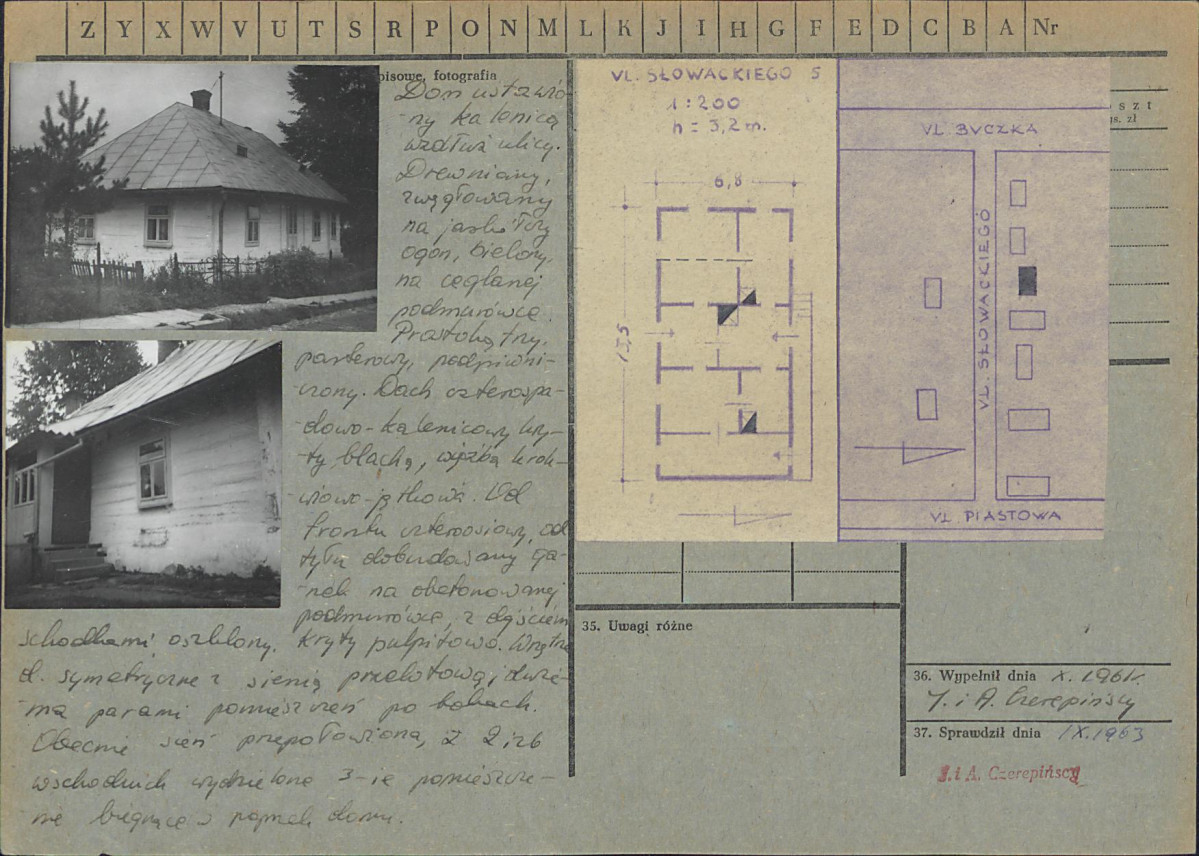 Z Y X W V U T S R P O N M L K J I H G F E D C B A Nr
pisowe, fotografia
Dom ustawio-
ny kalenicą
wzdłuż ulicy.
Drewniany,
zwęgłowany
na jaskółczy
ogon, bielony,
na ceglanej
podmurówce.
Prostokątny,
parterowy, podpiwni-
czony. Dach czterospa-
dowo-kalenicowy kry-
ty blachą, więźba krok-
wiowo-jętkowa. Od
frontu czteroosiowy, od
tyłu dobudowany ga-
nek na obetonowanej
podmurówce, z
schodkami, oszklony. Kryty pulpitowo. Wnętrz
symetryczne z sienią przelotową i dwie-
ma parami pomieszczeń po bokach.
Obecnie sień przepołowiona, z 2 izb
wschodnich wydzielone 3-ie pomieszcze-
nie biegnące w poprzek domu.
VL. SŁOWACKIEGO 5
1:200
h = 3,2 m.
6,8
VL. BVCZKA
VL. SŁOWACKIEGO
VL. PIASTOWA
s z t
s. zł
35. Uwagi różne
36. Wypełnił dnia X. 1961r.
J. i A. Czerepińscy
37. Sprawdził dnia IX.1963
J. i A. Czerepińscy